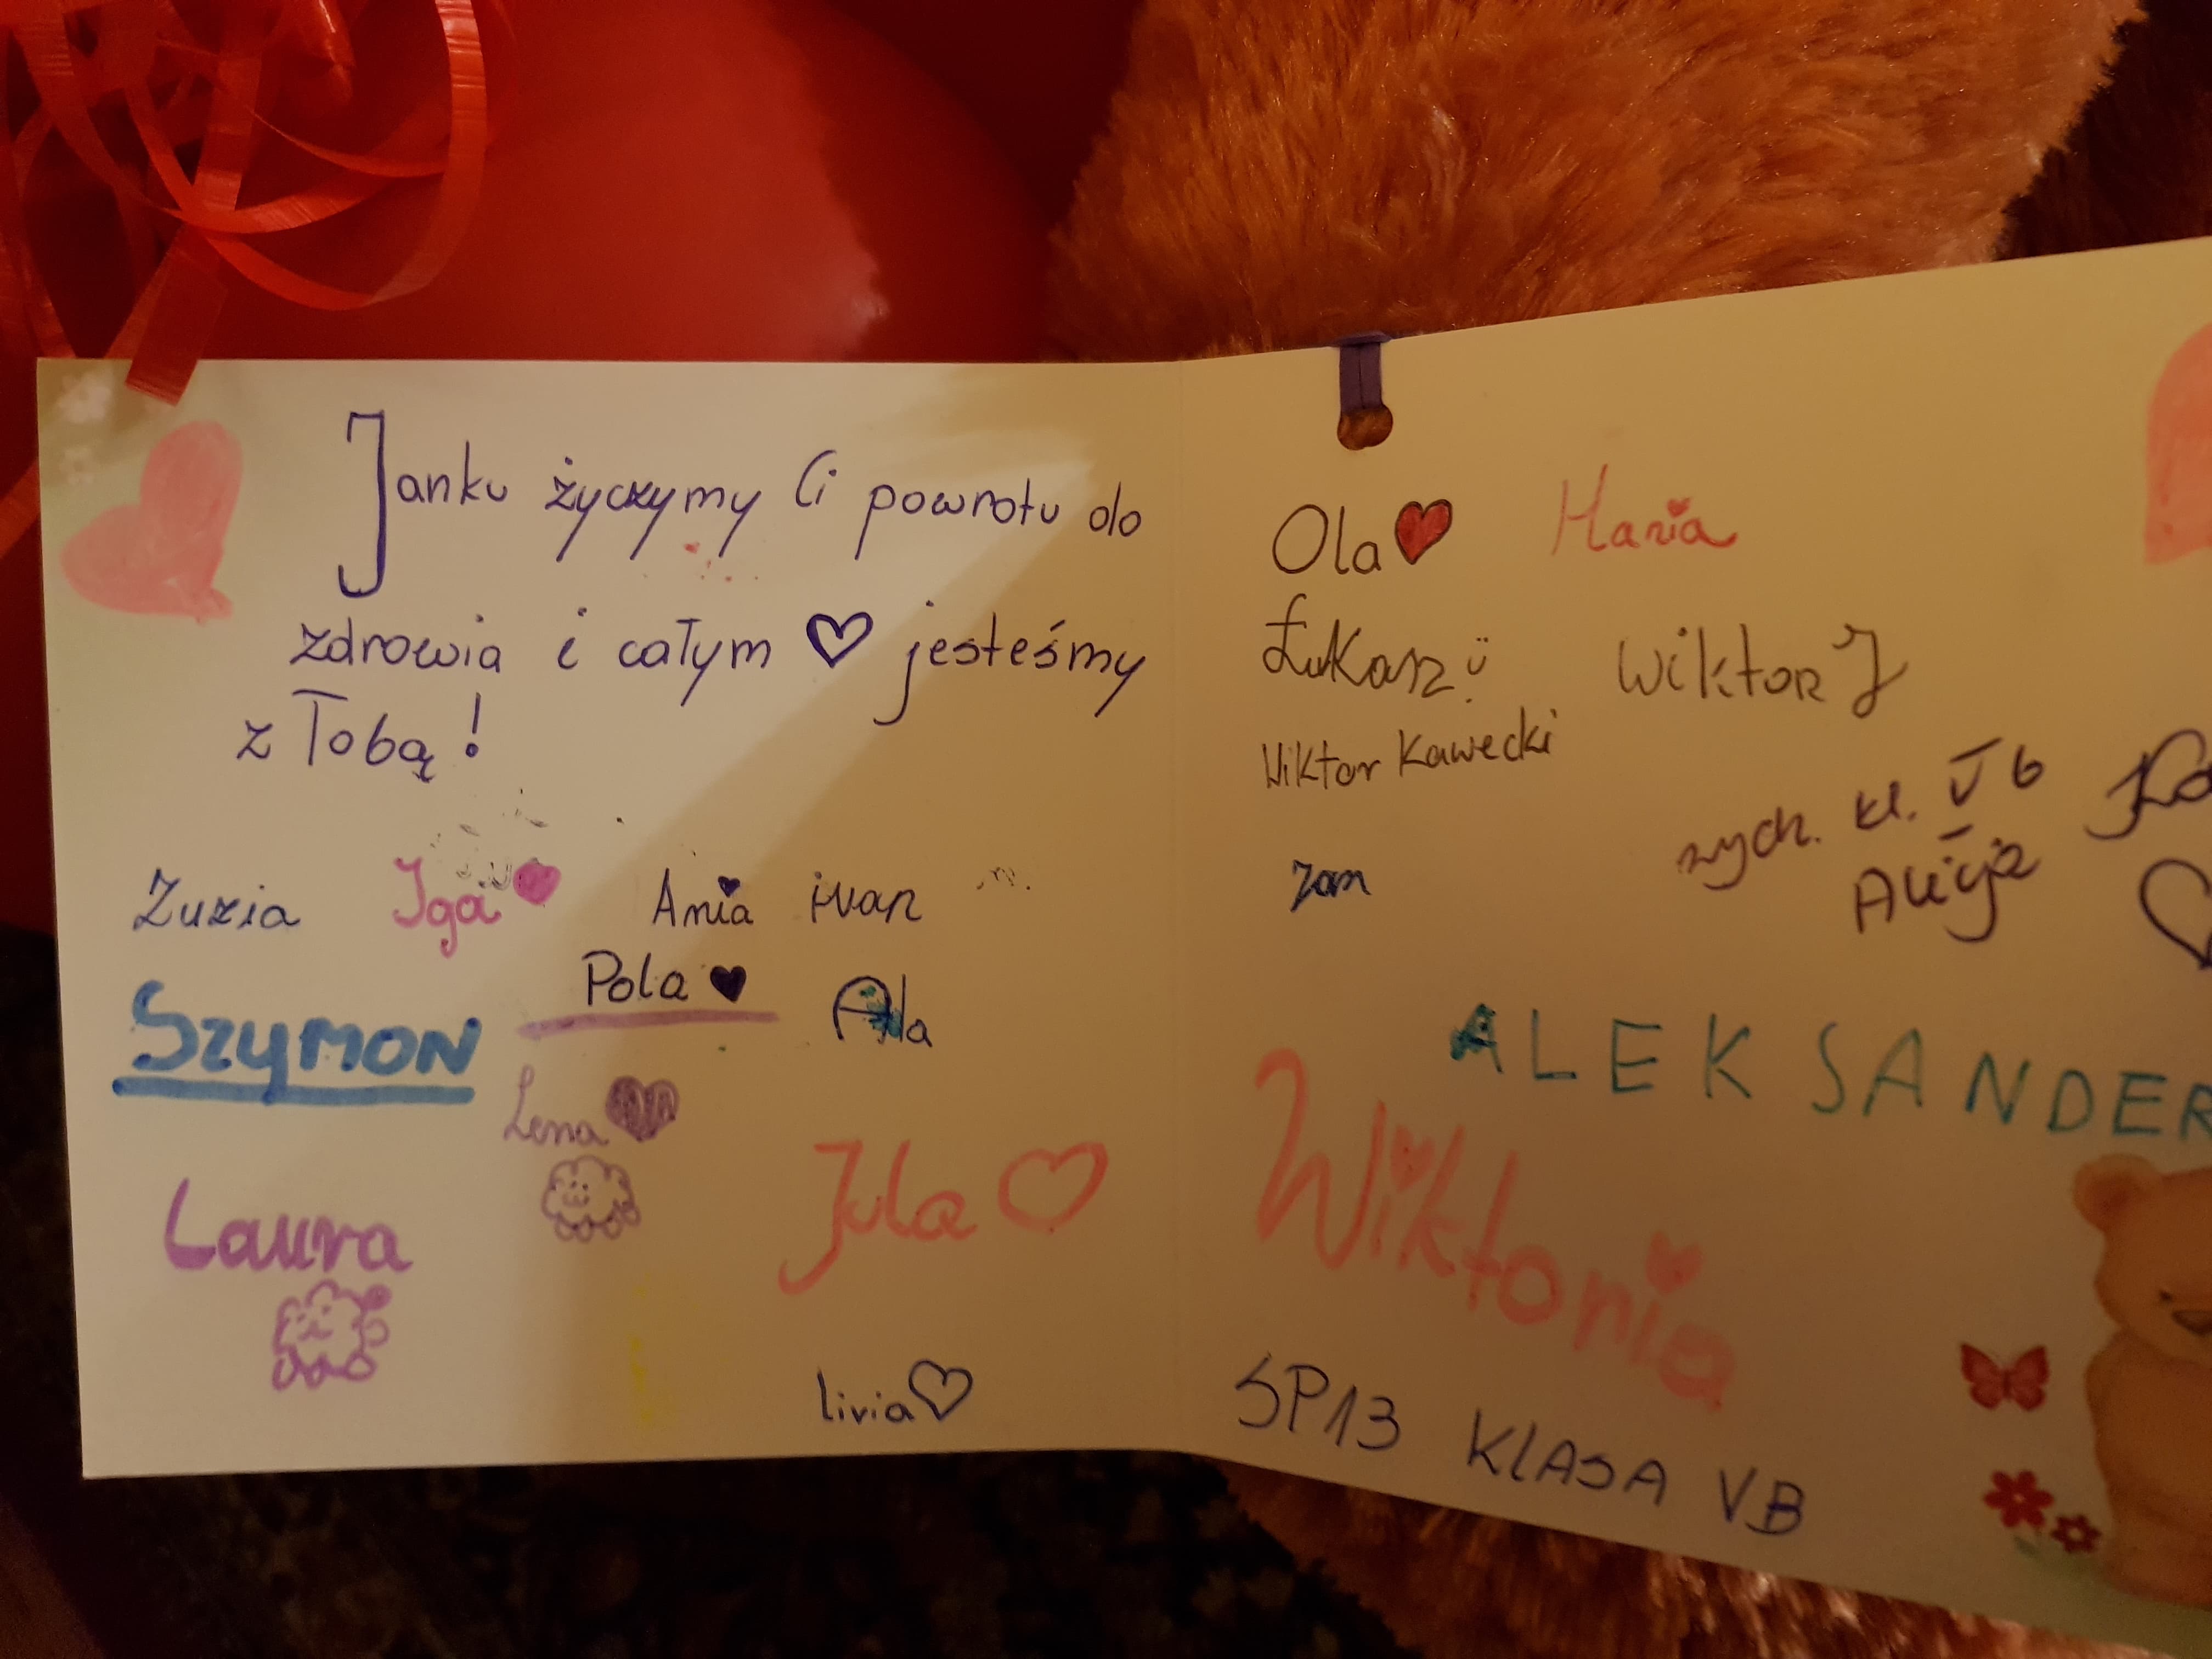 Janku życzymy Ci powrotu do
zdrowia i całym ♡ jesteśmy
z Tobą!
Zuzia Iga Ania ivan
Pola
Szymon Ala
Lena
Laura Jula
livia
Ola Hania
Łukasz Wiktor J
Wiktor Kawecki
wych. kl. V b
Alicja
Jan
ALEKSANDER
Wiktoria
SP13 KLASA VB